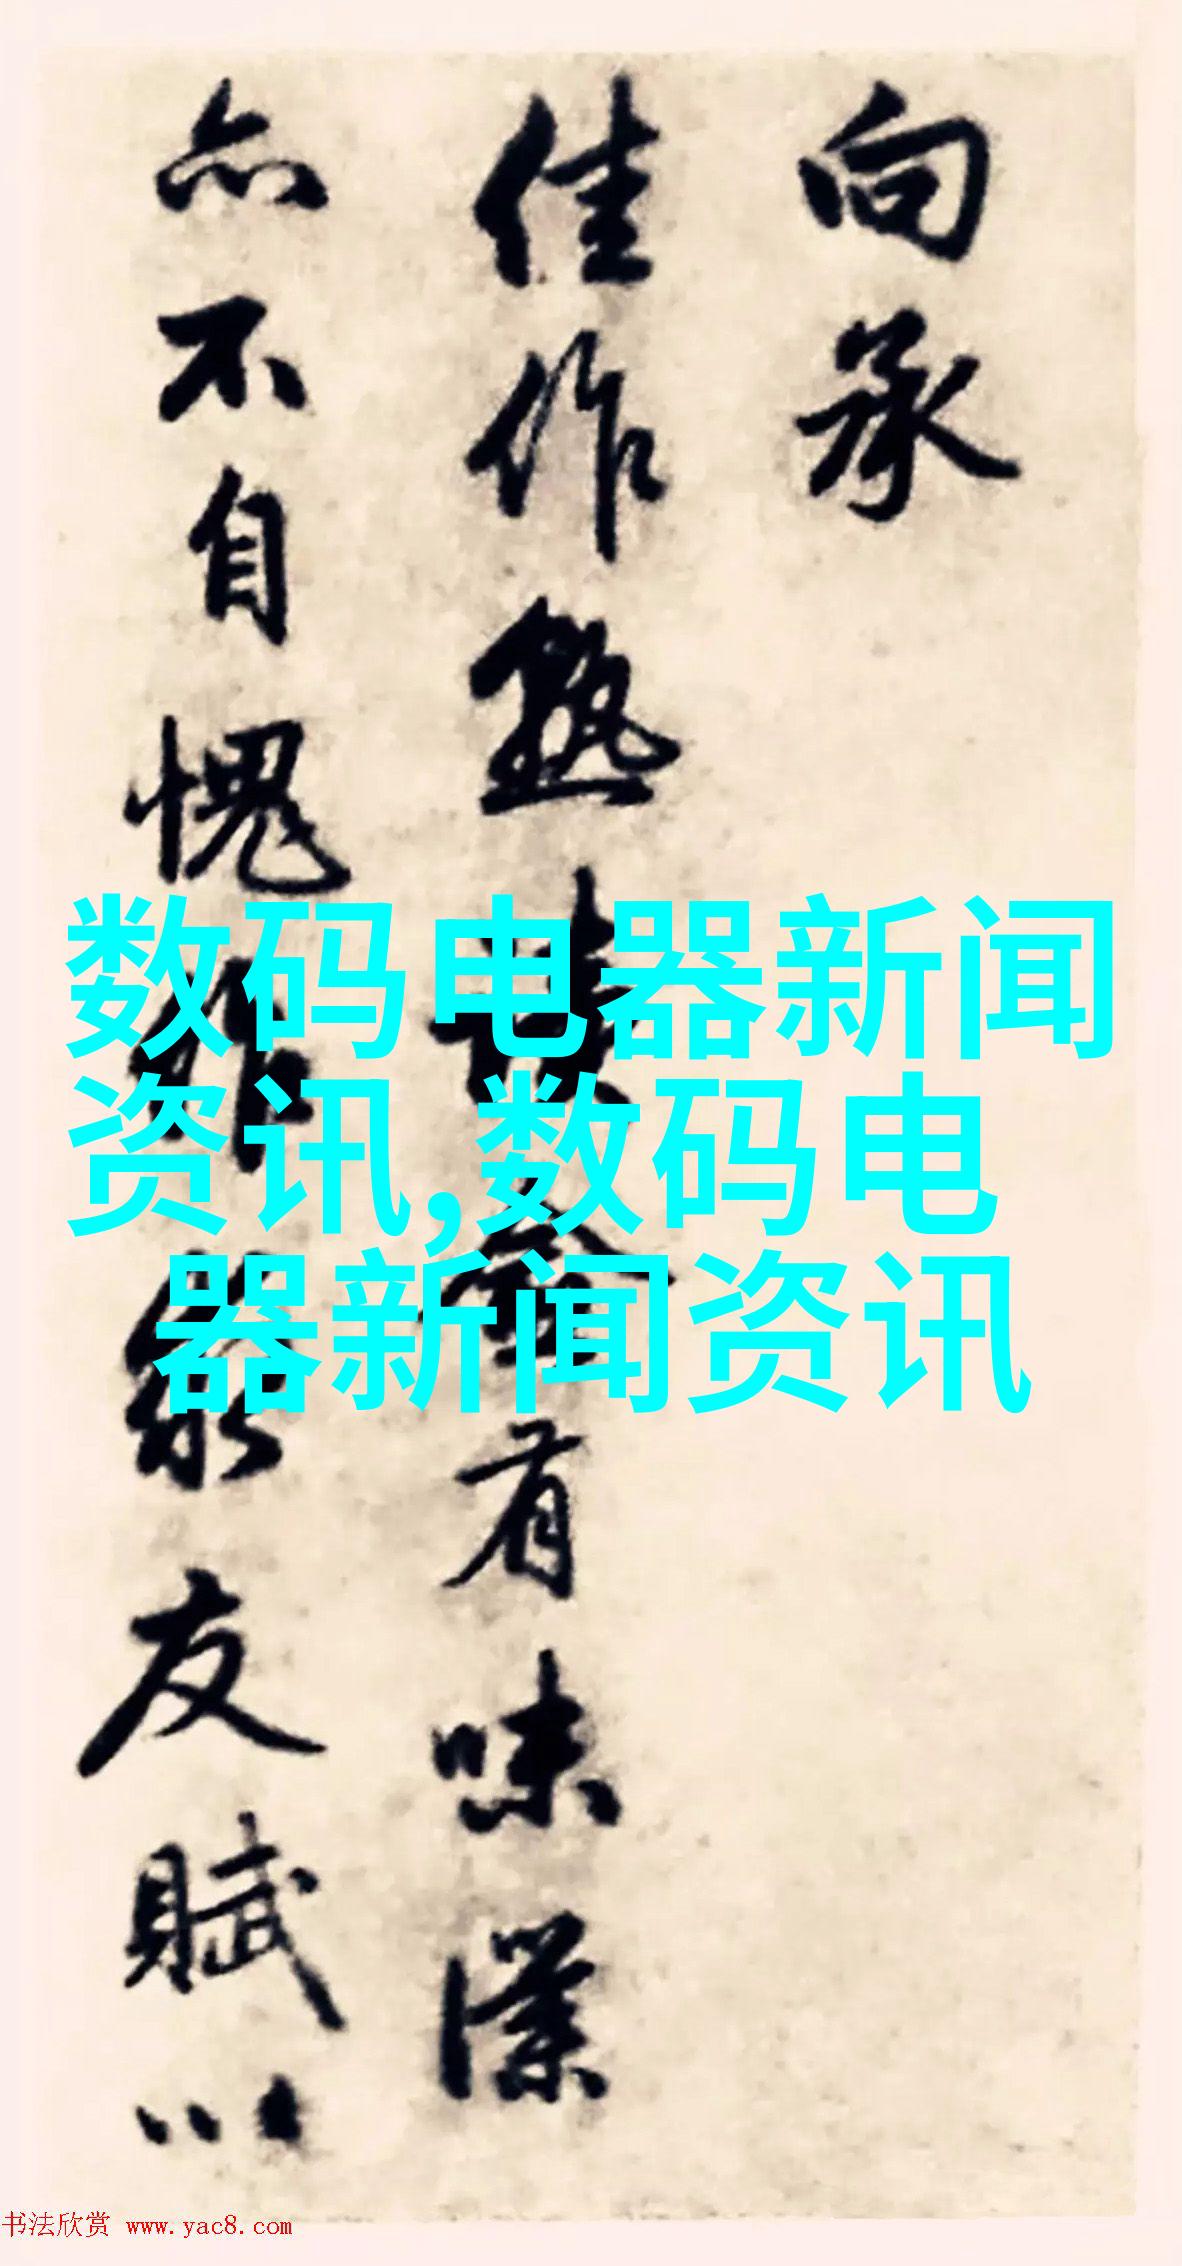 向承
佳作熟读会有味仆
亦不自愧作终友赋以
数码电器新闻
资讯,数码电
器新闻资讯
书法欣赏 www.yac8.com